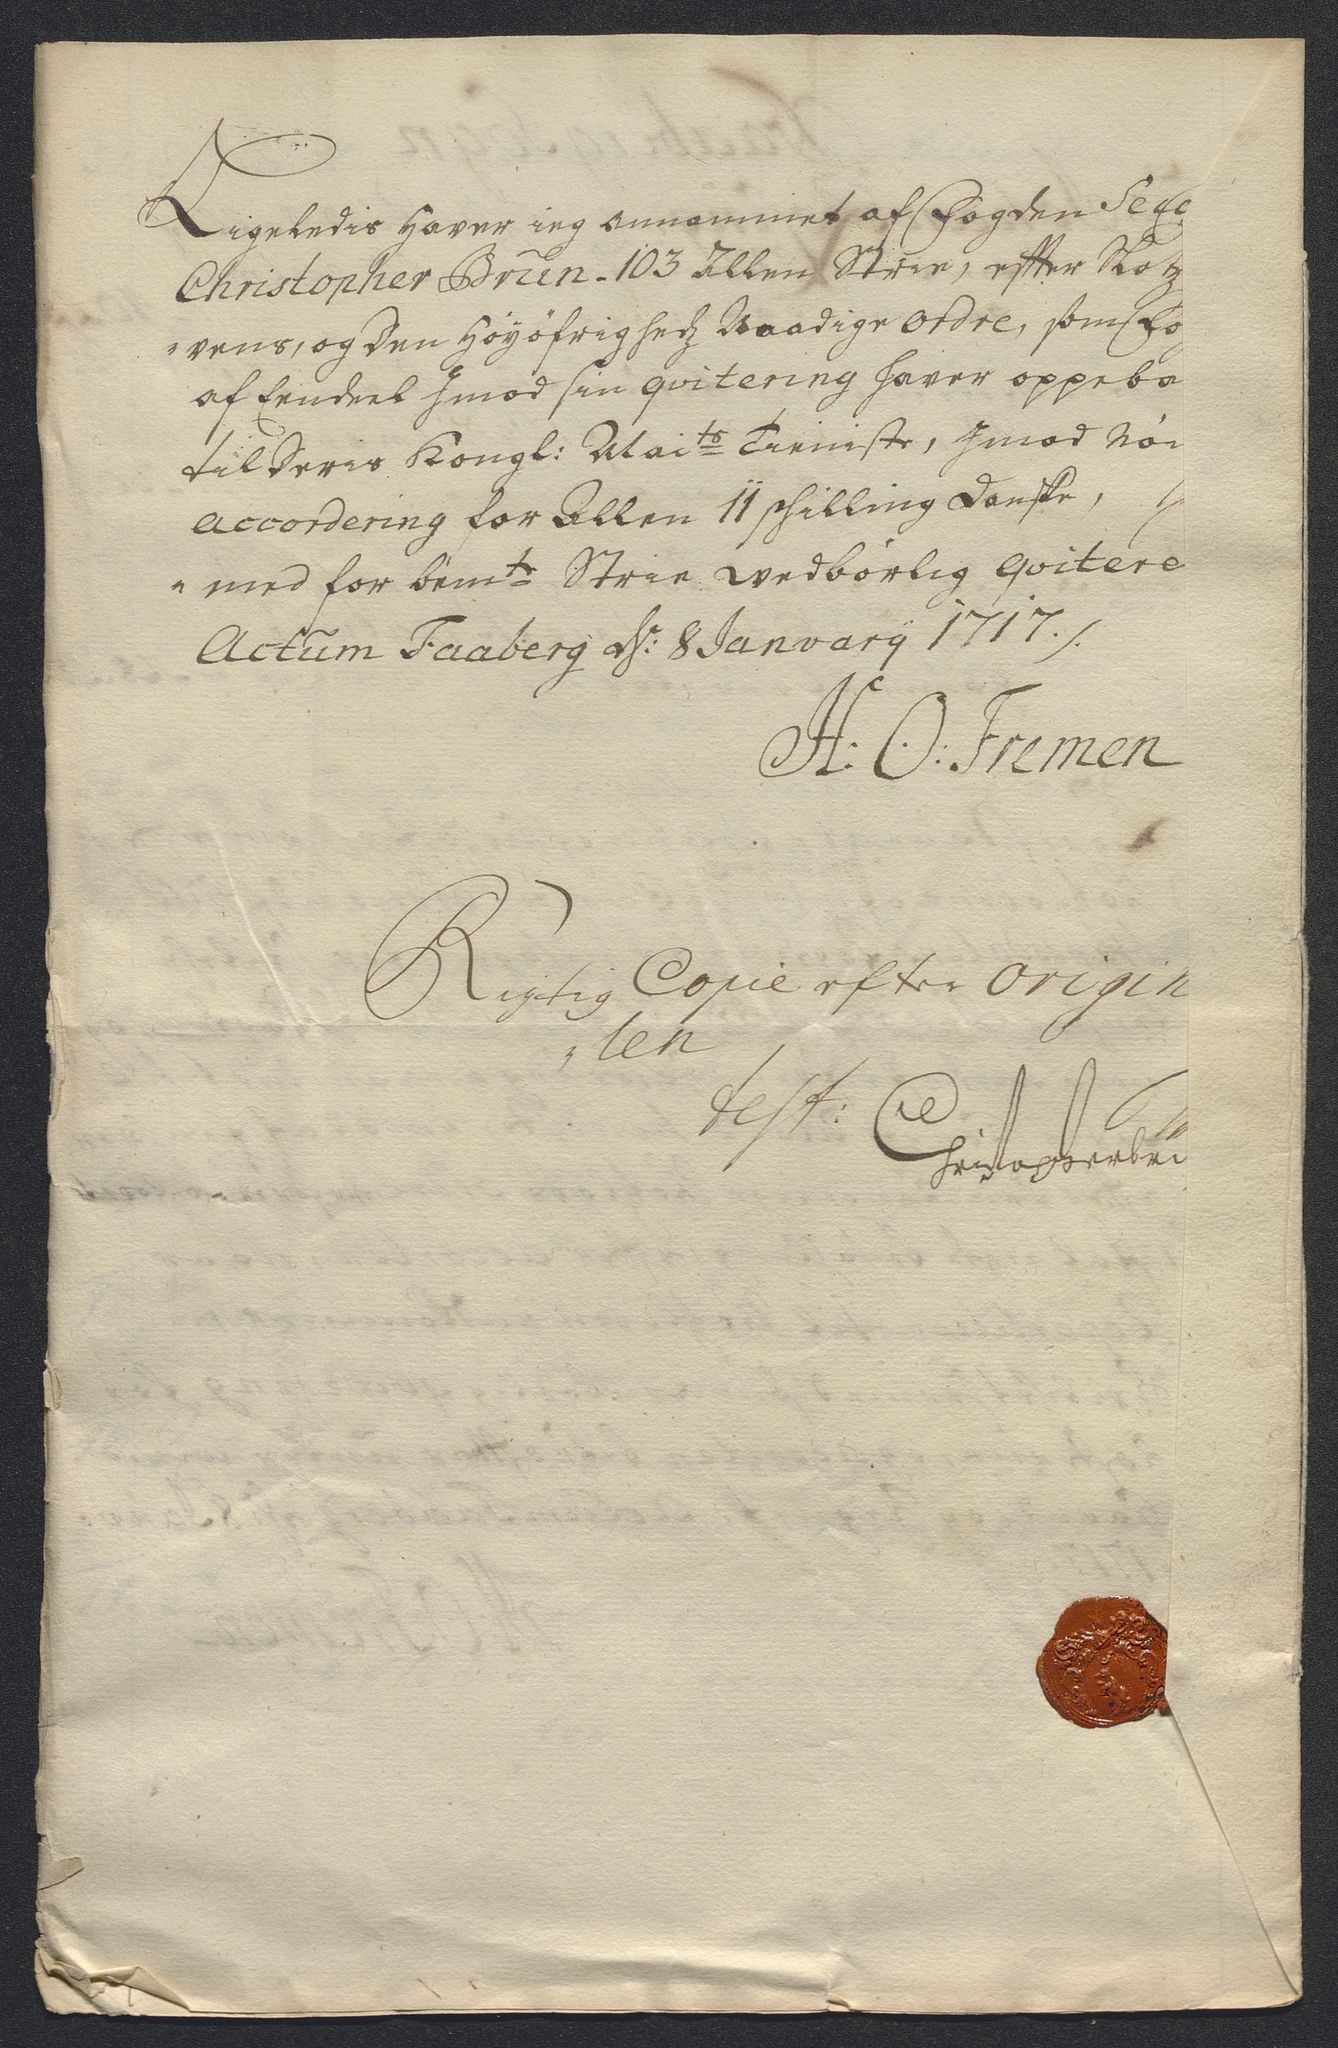 Ligeledis Haver ieg annammet af Fogden Sege
Christopher Brun - 103 Allen Strie, effter Slotz
vens, og den Høyøfrighedz Naadige ordre, som Fo
af Eendeel Jmod sin qvitering haver oppeba
til Deris Kongl: Maits Tieniste, Jmod Nøi
accordering for Allen 11 schilling Danske,
med for bemte Strie vedbørlig qvitere
Actum Faaberg ds: 8 Janvarij 1717 ./.
H: O: Fremen
Rigtig Copie efter origin
len
test:
Christopher bru